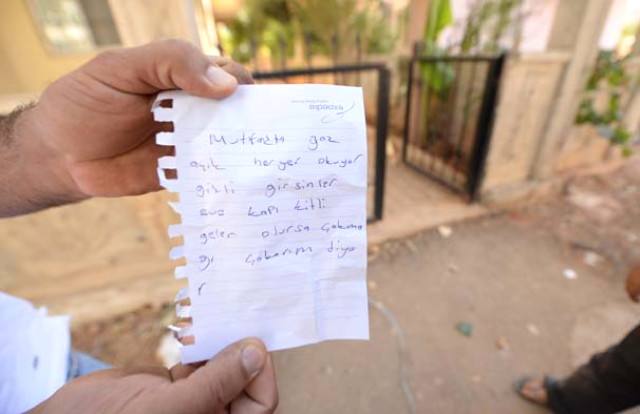 exxada
Mutfakta gaz
açık heryer okuyor
gizli girsinler
eve kapı kitli
gelen olursa çakma
ğı çakarım diyo
r